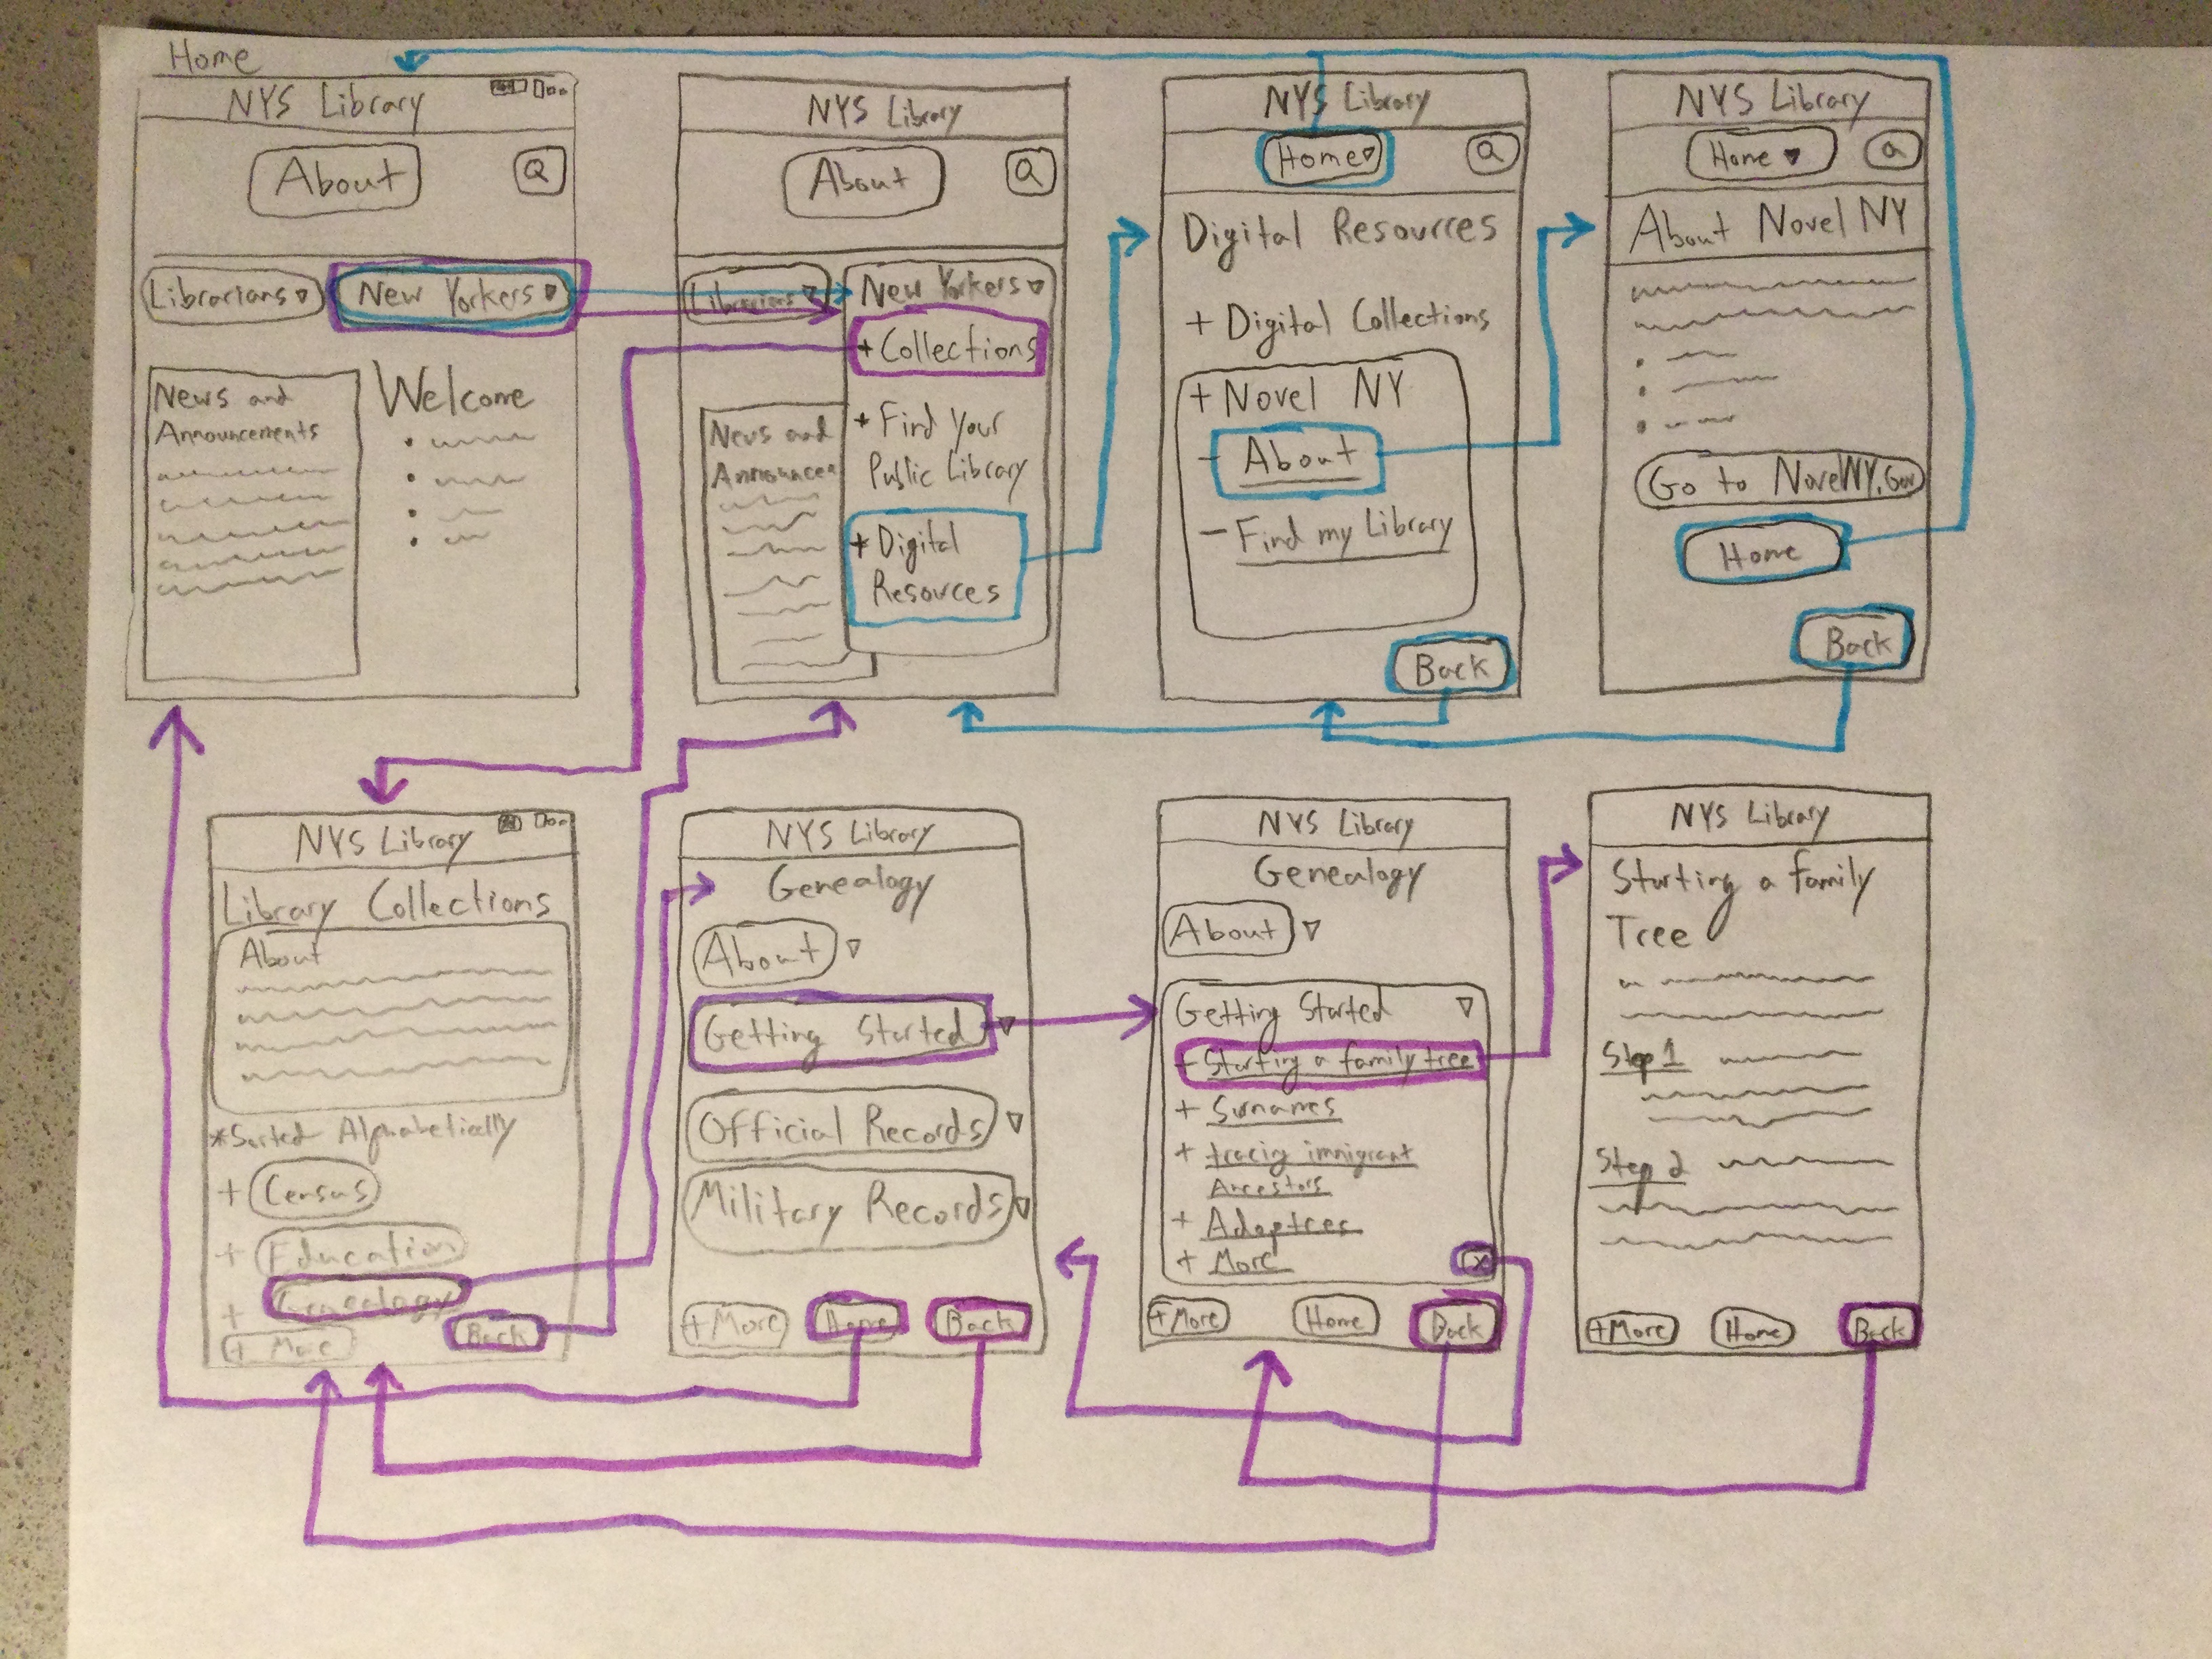 Home
NYS Library
About
Q
Librarians
New Yorkers
News and
Announcements
Welcome
NYS Library
About
Q
Librarians
New Yorkers
+ Collections
+ Find Your
Public Library
+ Digital
Resources
News and
Announcem
NYS Library
Home
Q
Digital Resources
+ Digital Collections
+ Novel NY
- About
- Find my Library
Back
NYS Library
Home
Q
About Novel NY
Go to NovelNY.Gov
Home
Back
NYS Library
Library Collections
About
*Sorted Alphabetically
+ Census
+ Education
+ Genealogy
+ More
Back
NYS Library
Genealogy
About
Getting Started
Official Records
Military Records
+ More
Home
Back
NYS Library
Genealogy
About
Getting Started
+ Starting a family tree
+ Surnames
+ tracing immigrant
Ancestors
+ Adoptees
+ More
X
+ More
Home
Back
NYS Library
Starting a family
Tree
Step 1
Step 2
+ More
Home
Back